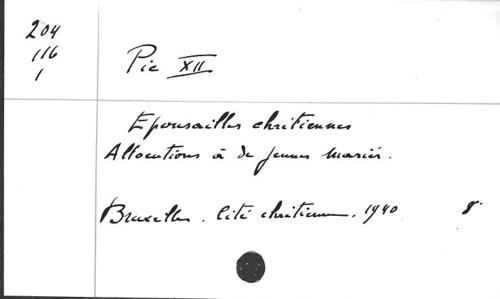 204
116
1
Pie XII
Epousailles chrétiennes
Allocutions à de jeunes mariés.
Bruxelles. Cité chrétienne, 1940 8°